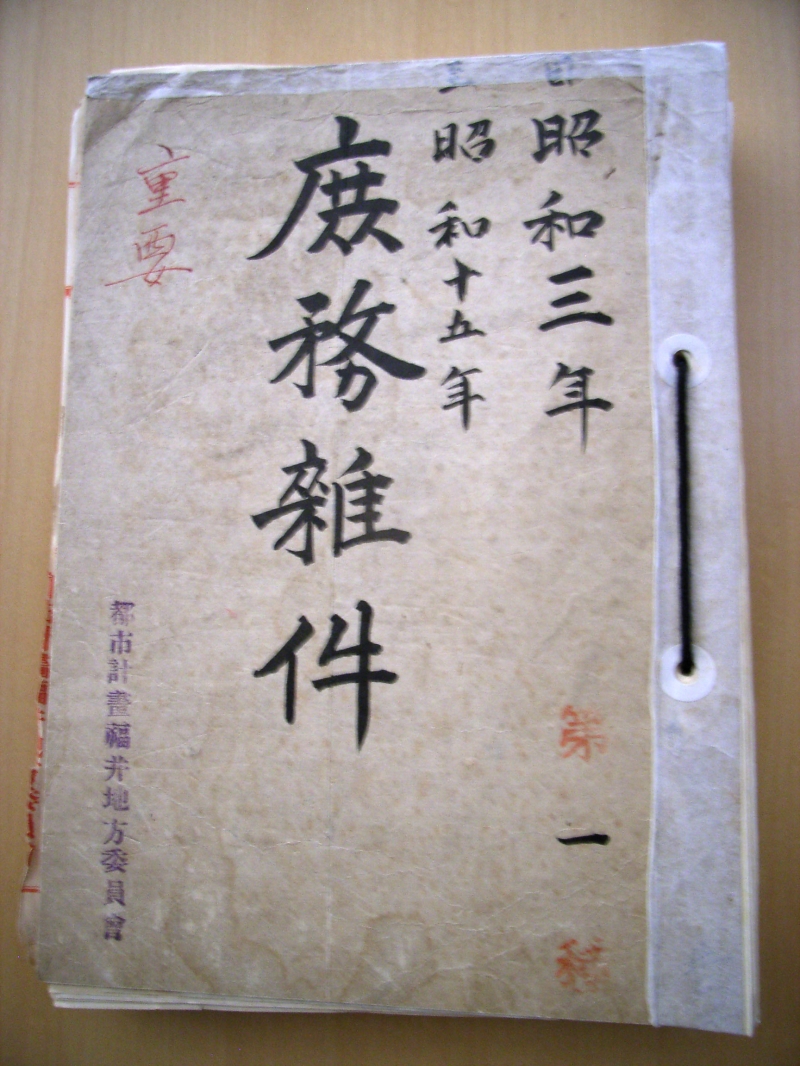 自昭和三年
至昭和十五年
庶務雜件
重要
第一種
都市計畫福井地方委員會